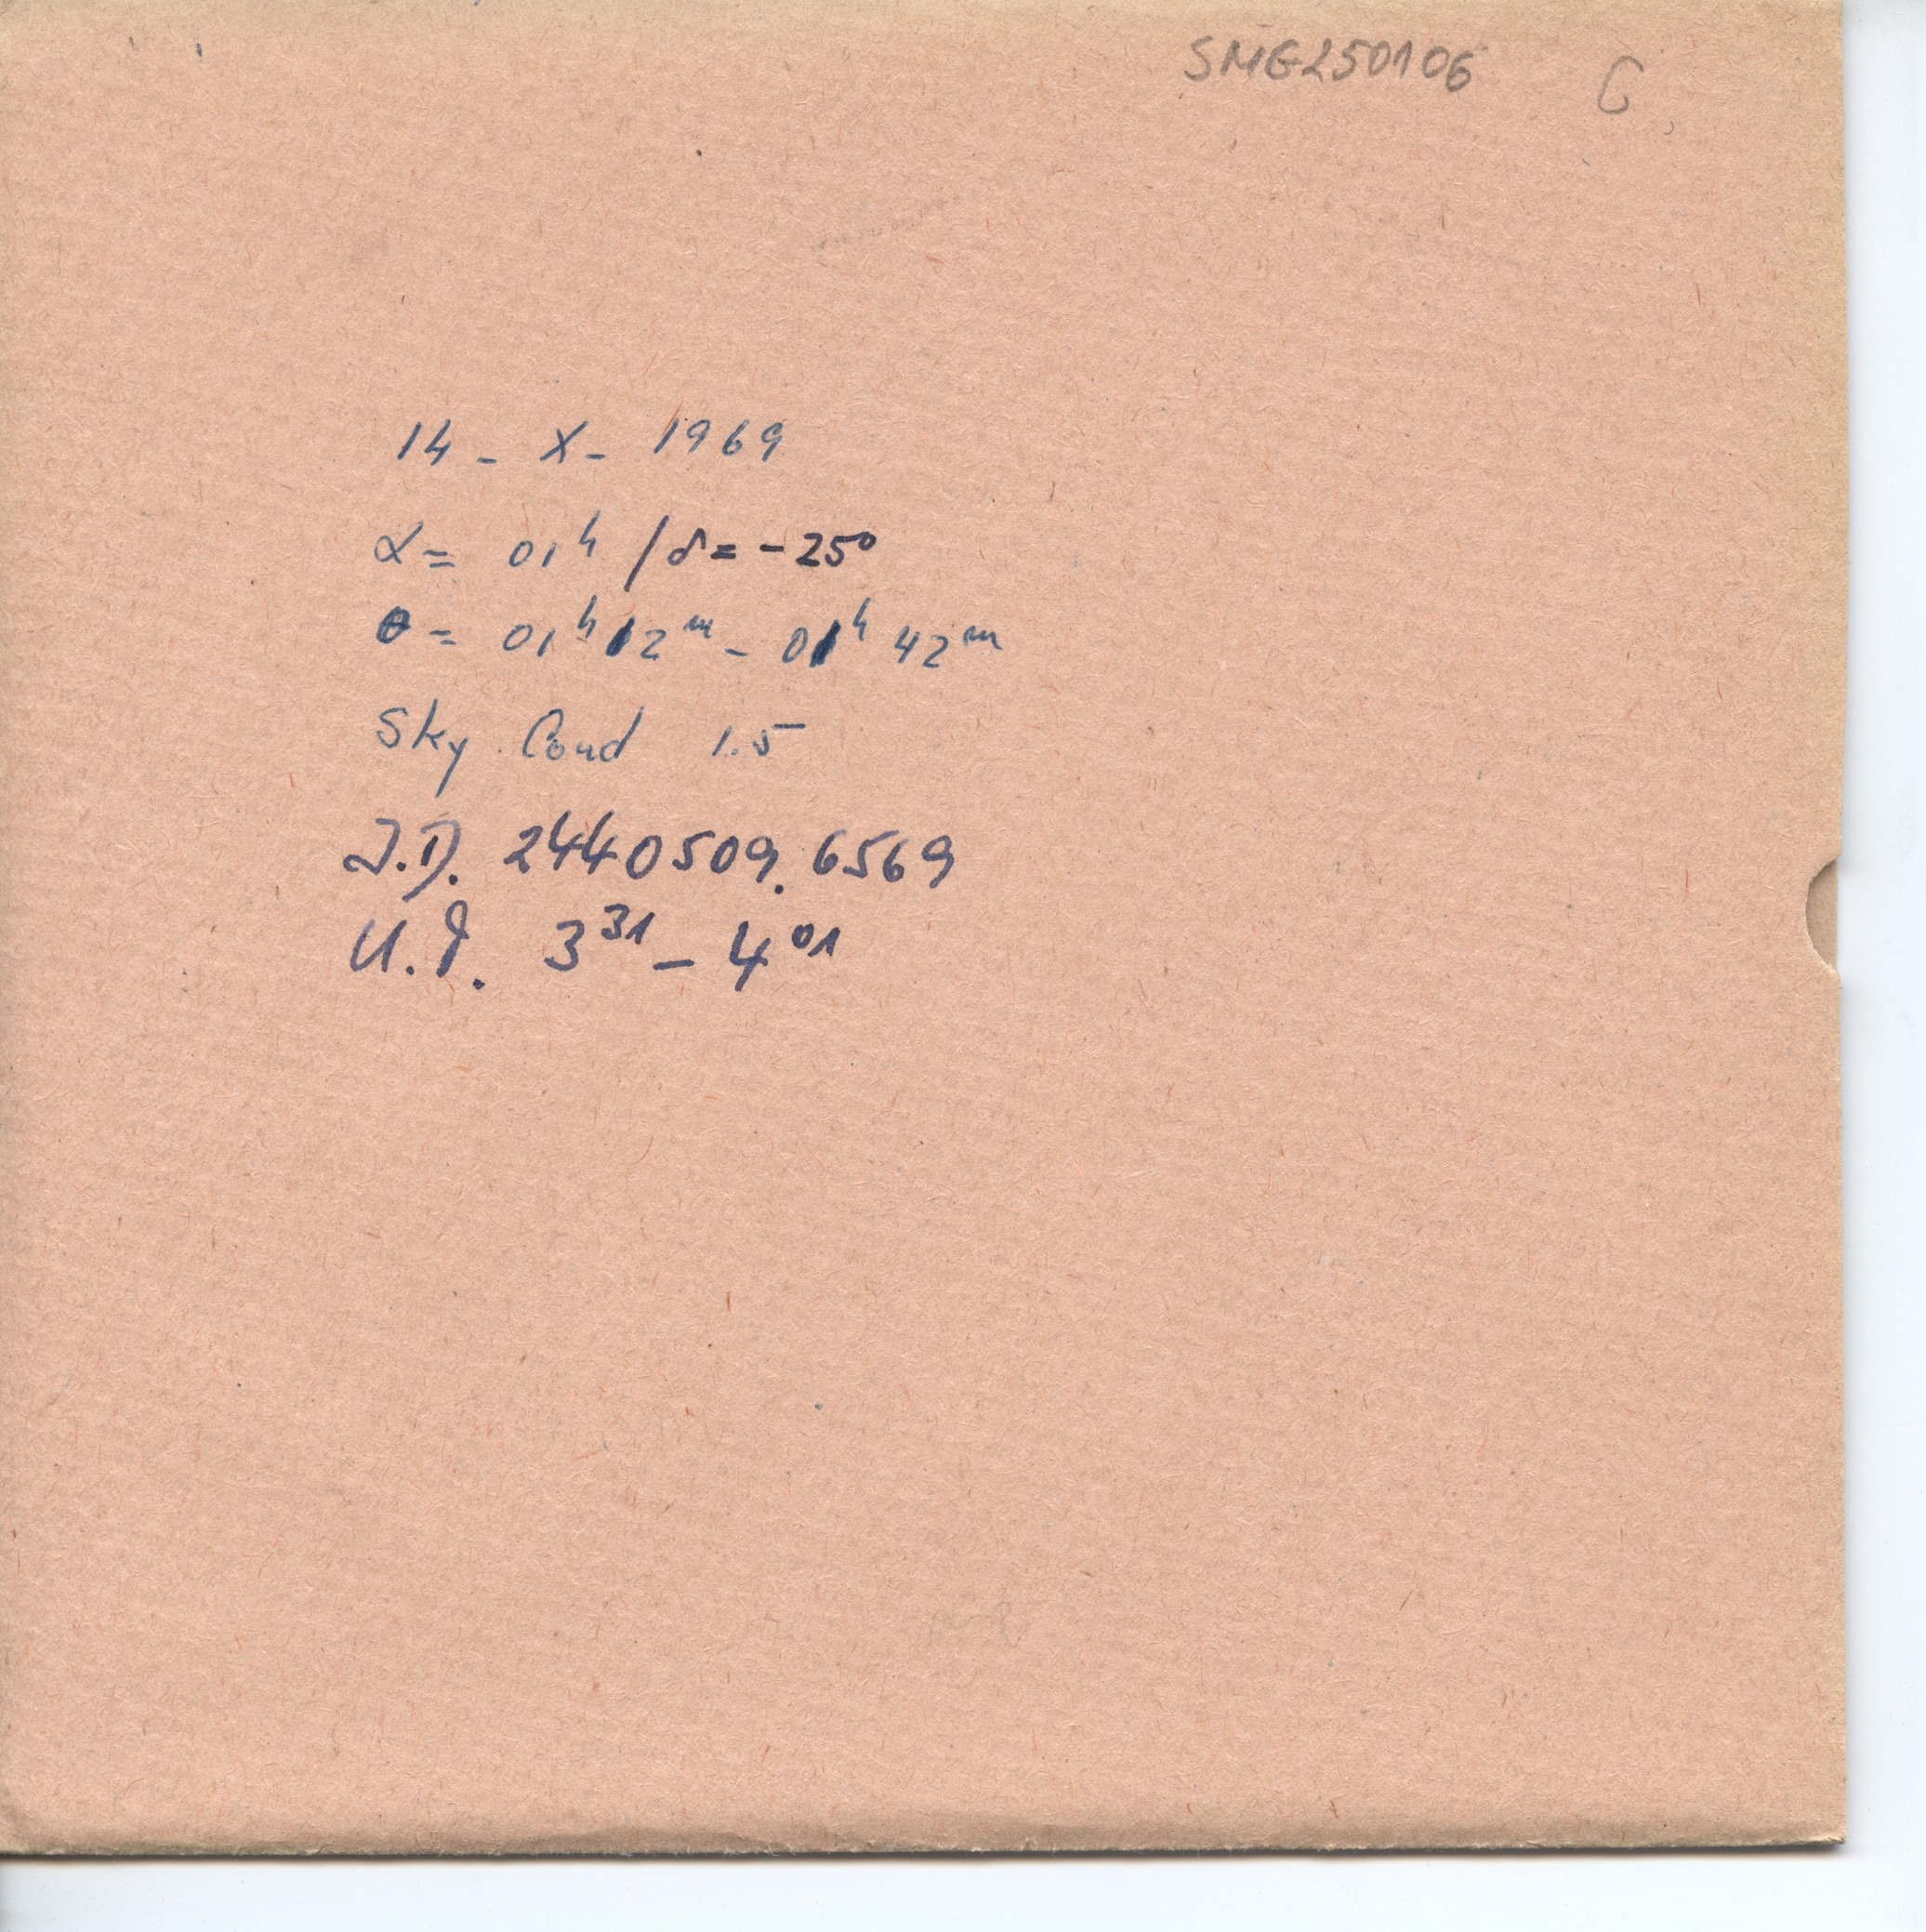 SMG250106 C
14 - X - 1969
α = 01ʰ / δ = -25°
θ = 01ʰ 12ᵐ - 01ʰ 42ᵐ
Sky Cond 1.5
J.D. 2440509.6569
U.T. 3³¹ - 4⁰¹